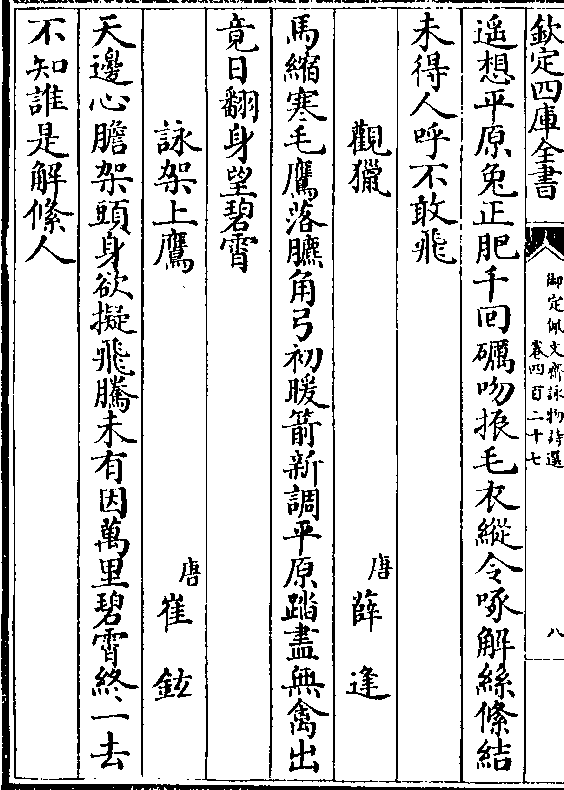 欽定四庫全書
御定佩文齋詠物詩選
卷四百二十七
八
遥想平原兔正肥千回礪吻振毛衣縱令啄解絲絛結
未得人呼不敢飛
觀獵
唐薛逢
馬縮寒毛鷹落臕角弓初暖箭新調平原踏盡無禽出
竟日翻身望碧霄
詠架上鷹
唐崔鉉
天邊心膽架頭身欲擬飛騰未有因萬里碧霄終一去
不知誰是解絛人